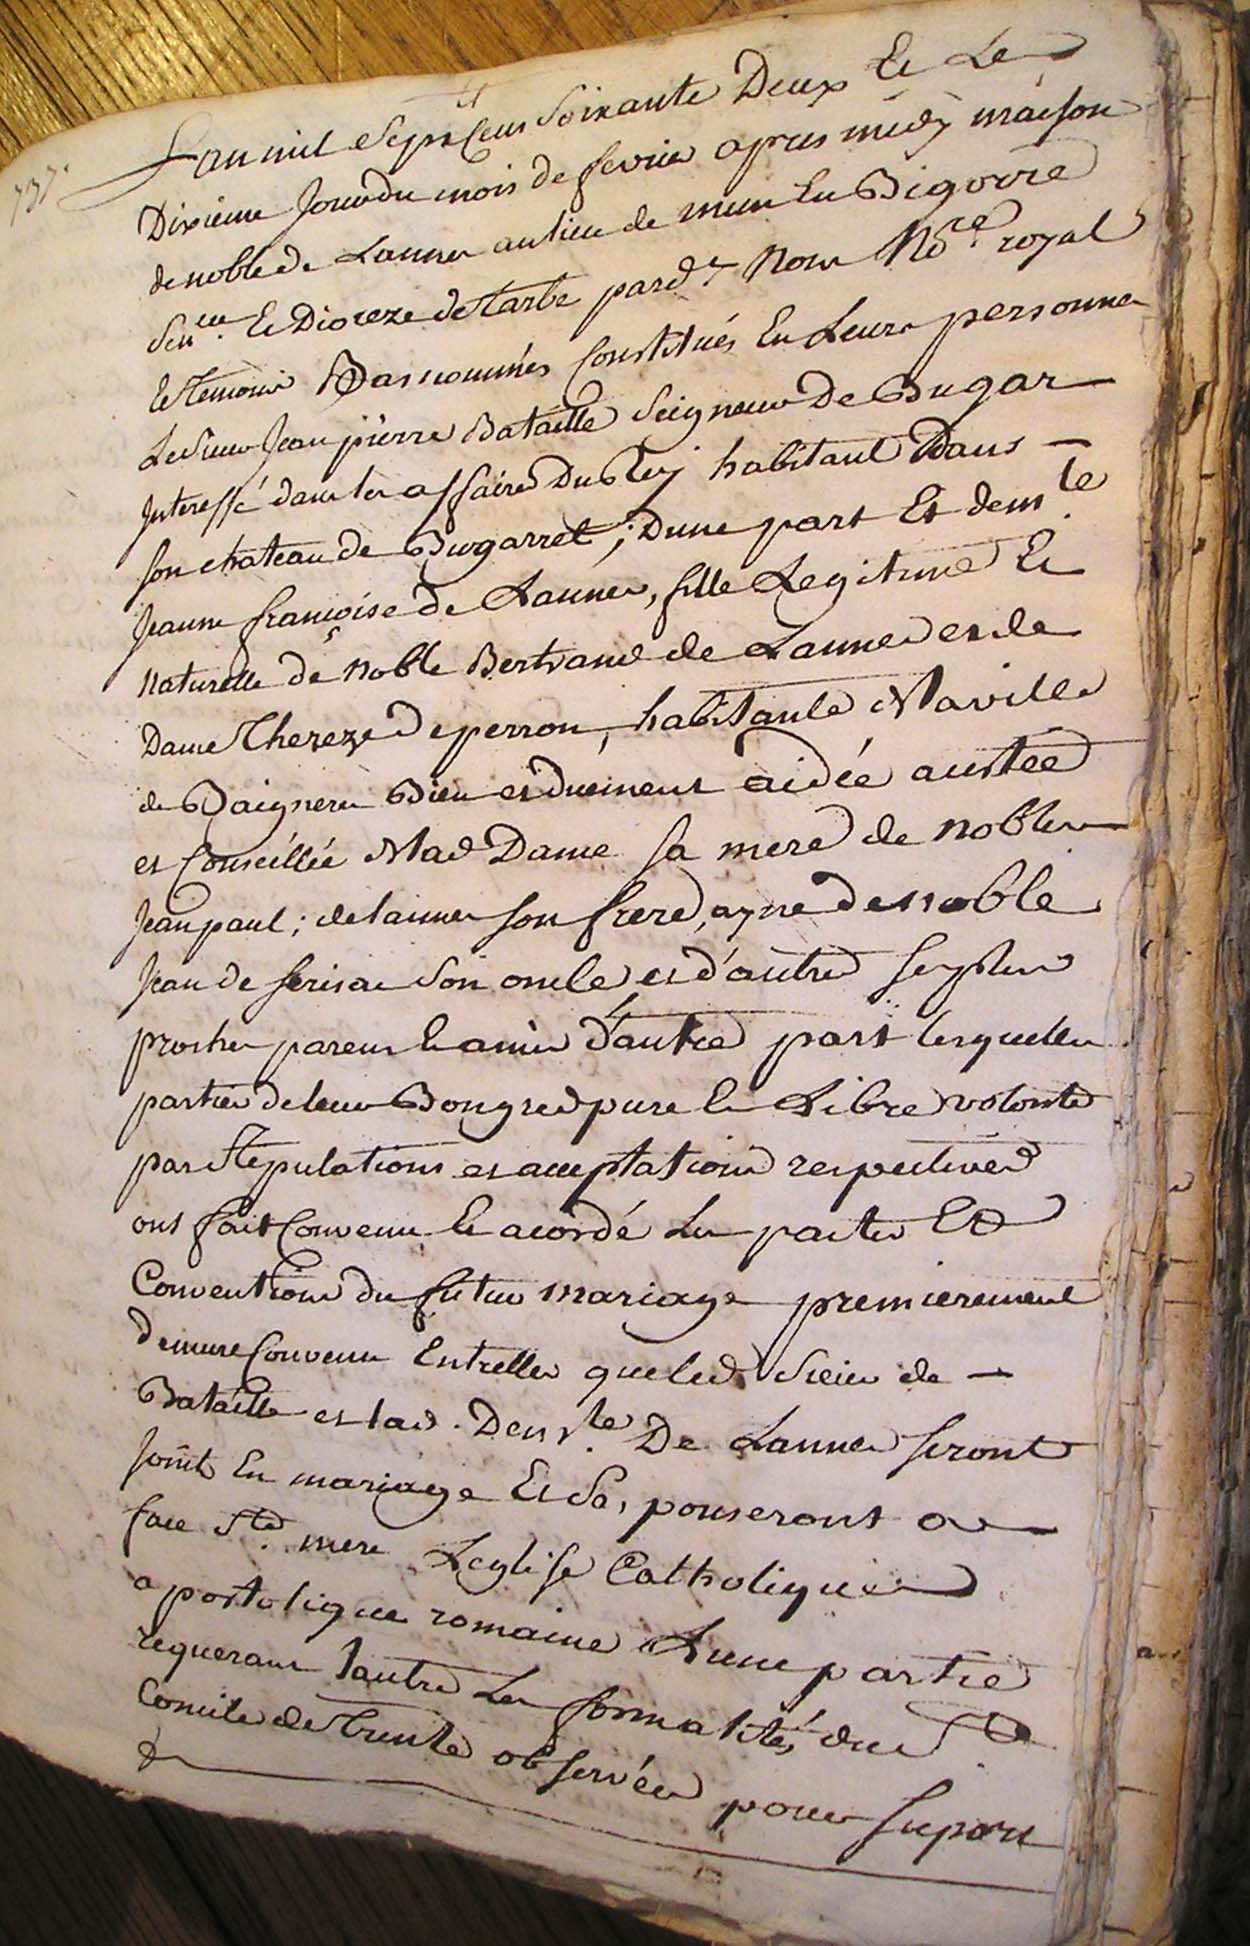 737.
Lan mil sept Cens soixante Deux Et Le
Dixième Jour du mois de fevrier apres midy maison
de noble de Lannes au lieu de mun En Bigorre
Sen.cée Et Dioceze de Tarbe pard.t Nous No.re royal
Et temoins Bas nommés Constitués En Leurs personnes
Le Sieur Jean pierre Bataille Seigneur De Bugar
Interessé dans les affaires Du Roy habitant Dans
son chateau de Bugarret ; Dune part Et dem.le
Jeanne françoise de Lannes, fille Legitime Et
naturelle de noble Bertrand de Lannes et de
Dame Thereze Deperron, habitante A la ville
de Baigneres Bien et duement aidée
et Conseillée de lad Dame sa mere de noble
Jean paul ; de lannes son frere, ayné de noble
Jean de serisac son oncle et d'autres ses plus
proches parens Et amis d'autre part lesquelles
parties de leur Bon gred pure Et Libre volonte
par Stipulations et acceptations respectives
ont fait Convenu Et acordé Les pactes Et
Conventions du futur mariage premierement
demure Convenu Entrelles que led. Sieur de
Bataille et lad. Dem.lle De Lannes seront
joint En mariage Et Sé, pouseront a
face Ste. mere Leglise Catholique
apostolique romaine Lune partie
requerant lautre Les formalités du St.
Concile de Trente observées pour suport
de